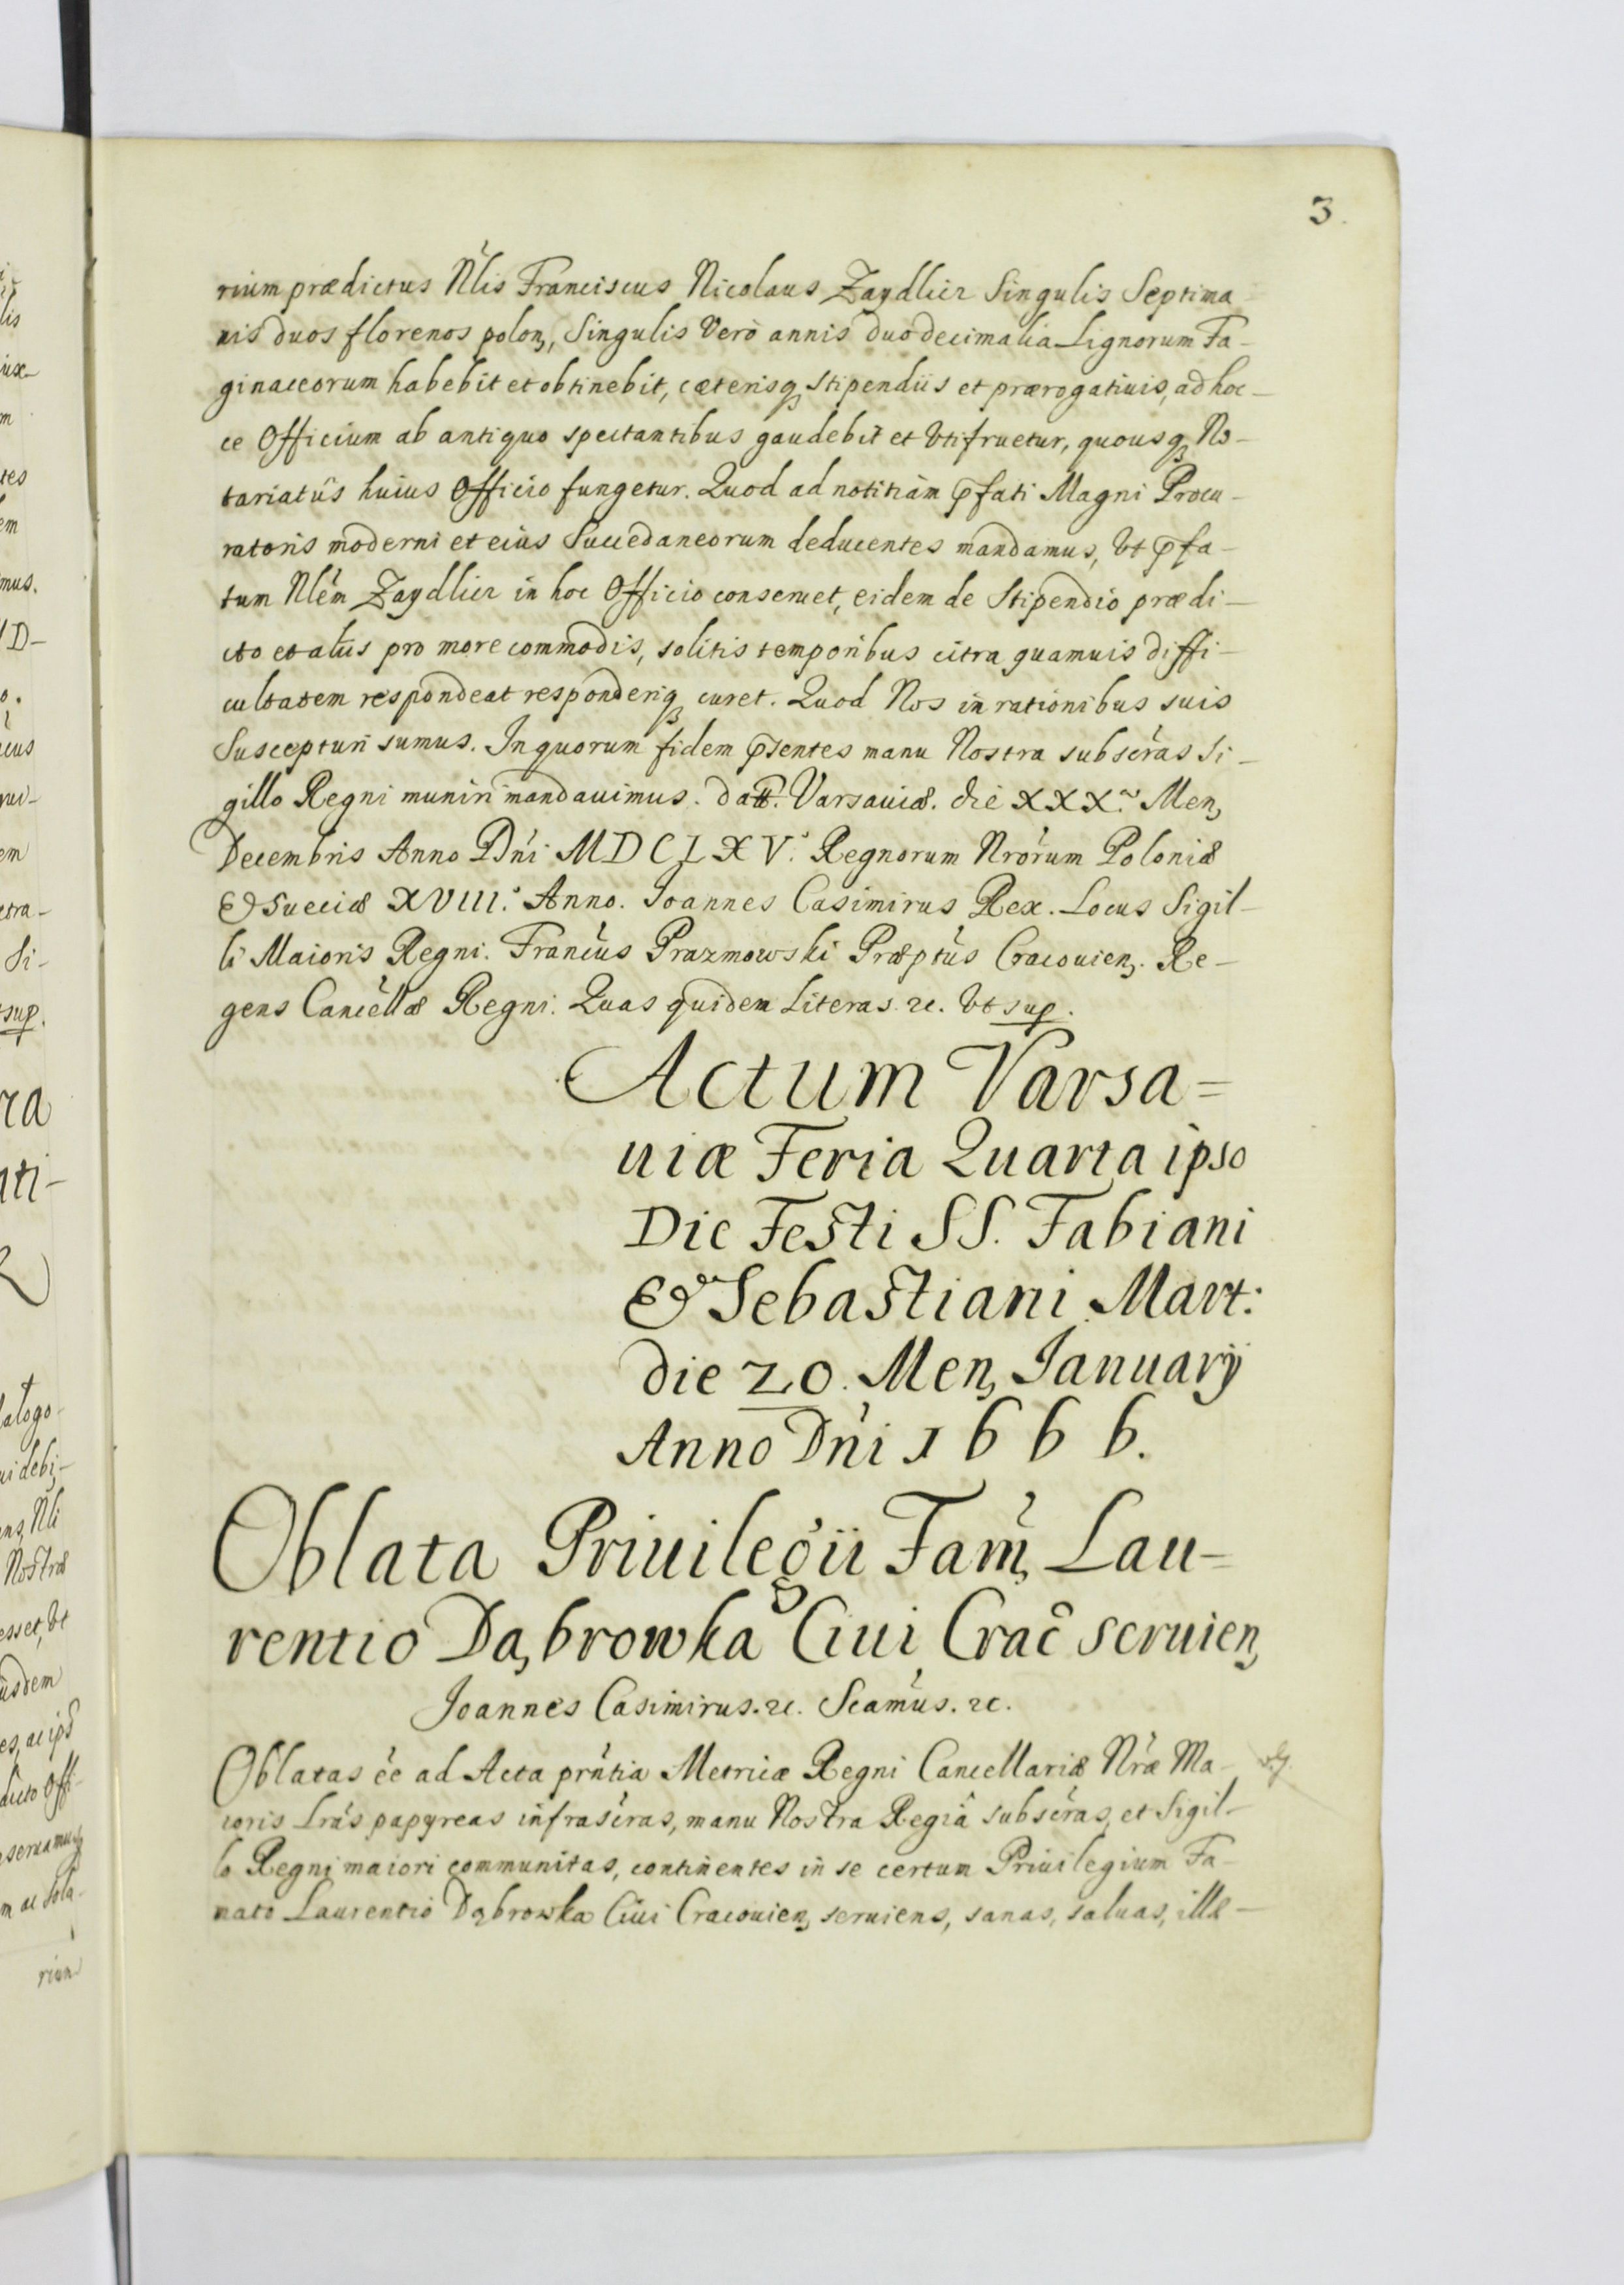 3.
rium prædictus Nlis Franciscus Nicolaus Zaydlicz Singulis Septima
nis duos florenos polon, Singulis Verò annis duodecimalia Lignorum Fa-
ginaceorum habebit et obtinebit, cæterisq stipendiis et prærogatiuis, ad hoc-
ce Officium ab antiquo spectantibus gaudebit et Vtifruetur, quousq No-
tariatûs huius Officio fungetur. Quod ad notitiam pfati Magni Procu-
ratoris moderni et eius Succedaneorum deducentes mandamus, Vt pfa-
tum Nlem Zaydlicz in hoc Officio conseruet, eidem de Stipendio prædi-
cto et aliis pro more commodis, solitis temporibus citra quamuis diffi-
cultatem respondeat responderiq curet. Quod Nos in rationibus suis
Suscepturi sumus. In quorum fidem psentes manu Nostra subscras Si-
gillo Regni muniri mandauimus. datt. Varsauiæ. die XXX. Men,
Decembris Anno Dni MDCLXV. Regnorum Nrorum Poloniæ
& Sueciæ XVIII. Anno. Ioannes Casimirus Rex. Locus Sigil-
li Maioris Regni. Francus Prazmowski Præptus Cracouien. Re-
gens Cancellæ Regni. Quas quidem Literas. &c. Vt sup.
Actum Varsa=
uiæ Feria Quarta ipso
Die Festi SS. Fabiani
& Sebastiani Mart:
die 20. Men, Ianuarij
Anno Dni 1666.
Oblata Priuilegii Fam, Lau-
rentio Dąbrowka Ciui Crac seruien,
Joannes Casimirus. &c. Scamus. &c.
Oblatas ee ad Acta prntia Metricæ Regni Cancellariæ Nræ Ma-
ioris Lras papyreas infrascras, manu Nostra Regiâ subscras, et Sigil-
lo Regni maiori communitas, continentes in se certum Priuilegium Fa-
mato Laurentio Dąbrowka Ciui Cracouien, seruiens, sanas, saluas, illæ-